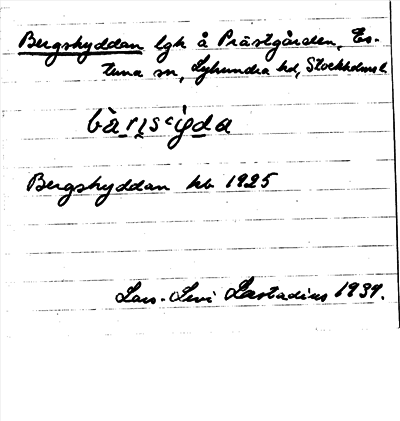 Bergskyddan lgh å Prästgården, Es-
tuna sn, Lyhundra hd, Stockholms l.
Bergskyddan kb 1925
Lars-Levi Læstadius 1939.